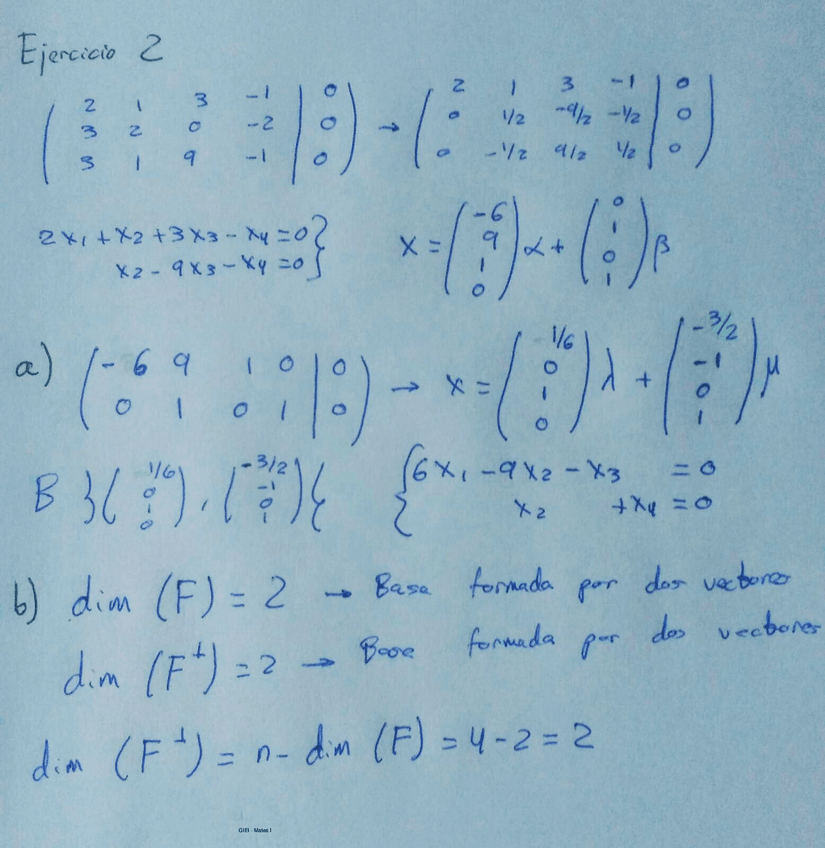 Ejercicio 2
( 2 1 3 -1 | 0 ) → ( 2 1 3 -1 | 0 )
( 3 2 0 -2 | 0 ) ( 0 1/2 -9/2 -1/2 | 0 )
( 3 1 9 -1 | 0 ) ( 0 -1/2 9/2 1/2 | 0 )
2x₁ + x₂ + 3x₃ - x₄ = 0 }
x₂ - 9x₃ - x₄ = 0 }
x = (-6 9 1 0) α + (0 1 0 1) β
a) ( -6 9 1 0 | 0 ) → x = (1/6 0 1 0) λ + (-3/2 -1 0 1) μ
( 0 1 0 1 | 0 )
B }(1/6 0 1 0), (-3/2 -1 0 1){
{ 6x₁ - 9x₂ - x₃ = 0
{ x₂ + x₄ = 0
b) dim (F) = 2 → Base formada por dos vectores
dim (F⊥) = 2 → Base formada por dos vectores
dim (F⊥) = n - dim (F) = 4 - 2 = 2
GIEI · Mates I